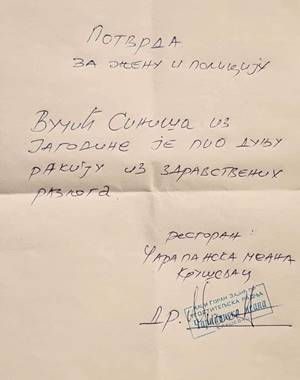 Потврда
за жену и полицију
Вучић Синиша из
Јагодине је пио дуњу
ракију из здравствених
разлога.
ресторан:
Чарапанска меана
Крушевац
Др.
Чарапанска меана